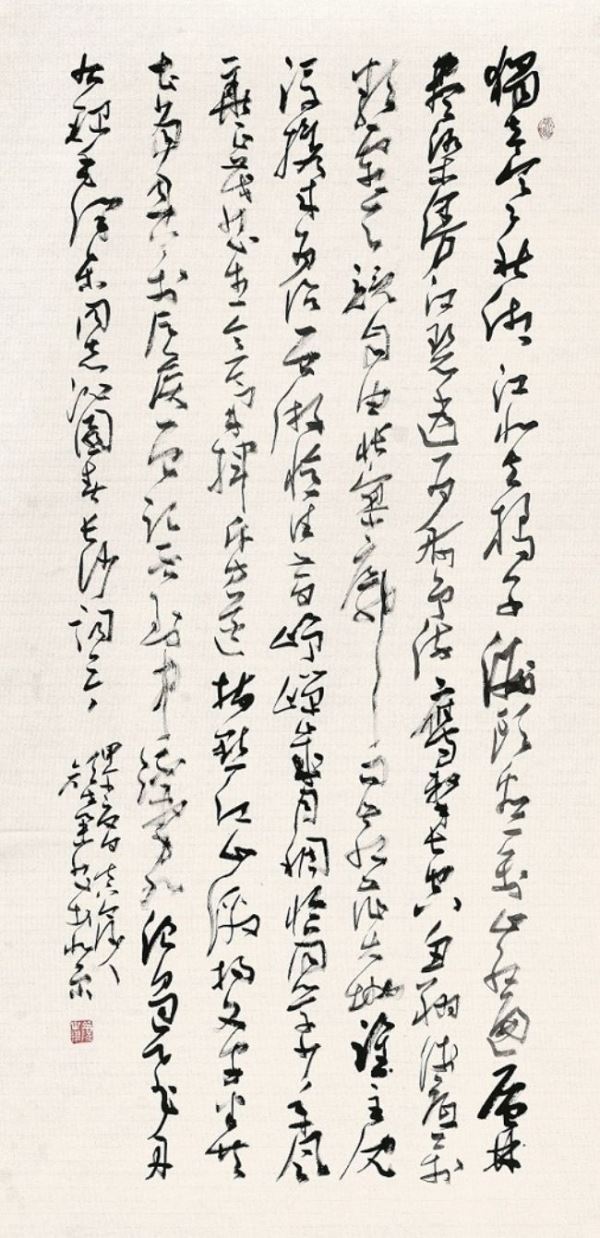 獨立寒秋湘江北去橘子洲頭看萬山紅遍層林
盡染漫江碧透百舸爭流鷹擊長空魚翔淺底萬
類霜天競自由悵寥廓問蒼茫大地誰主沉
浮攜來百侶曾遊憶往昔崢嶸歲月稠恰同學少年風
華正茂書生意氣揮斥方遒指點江山激揚文字糞
土當年萬戶侯曾記否到中流擊水浪遏飛舟
右錄毛澤東同志沁園春長沙詞
北京